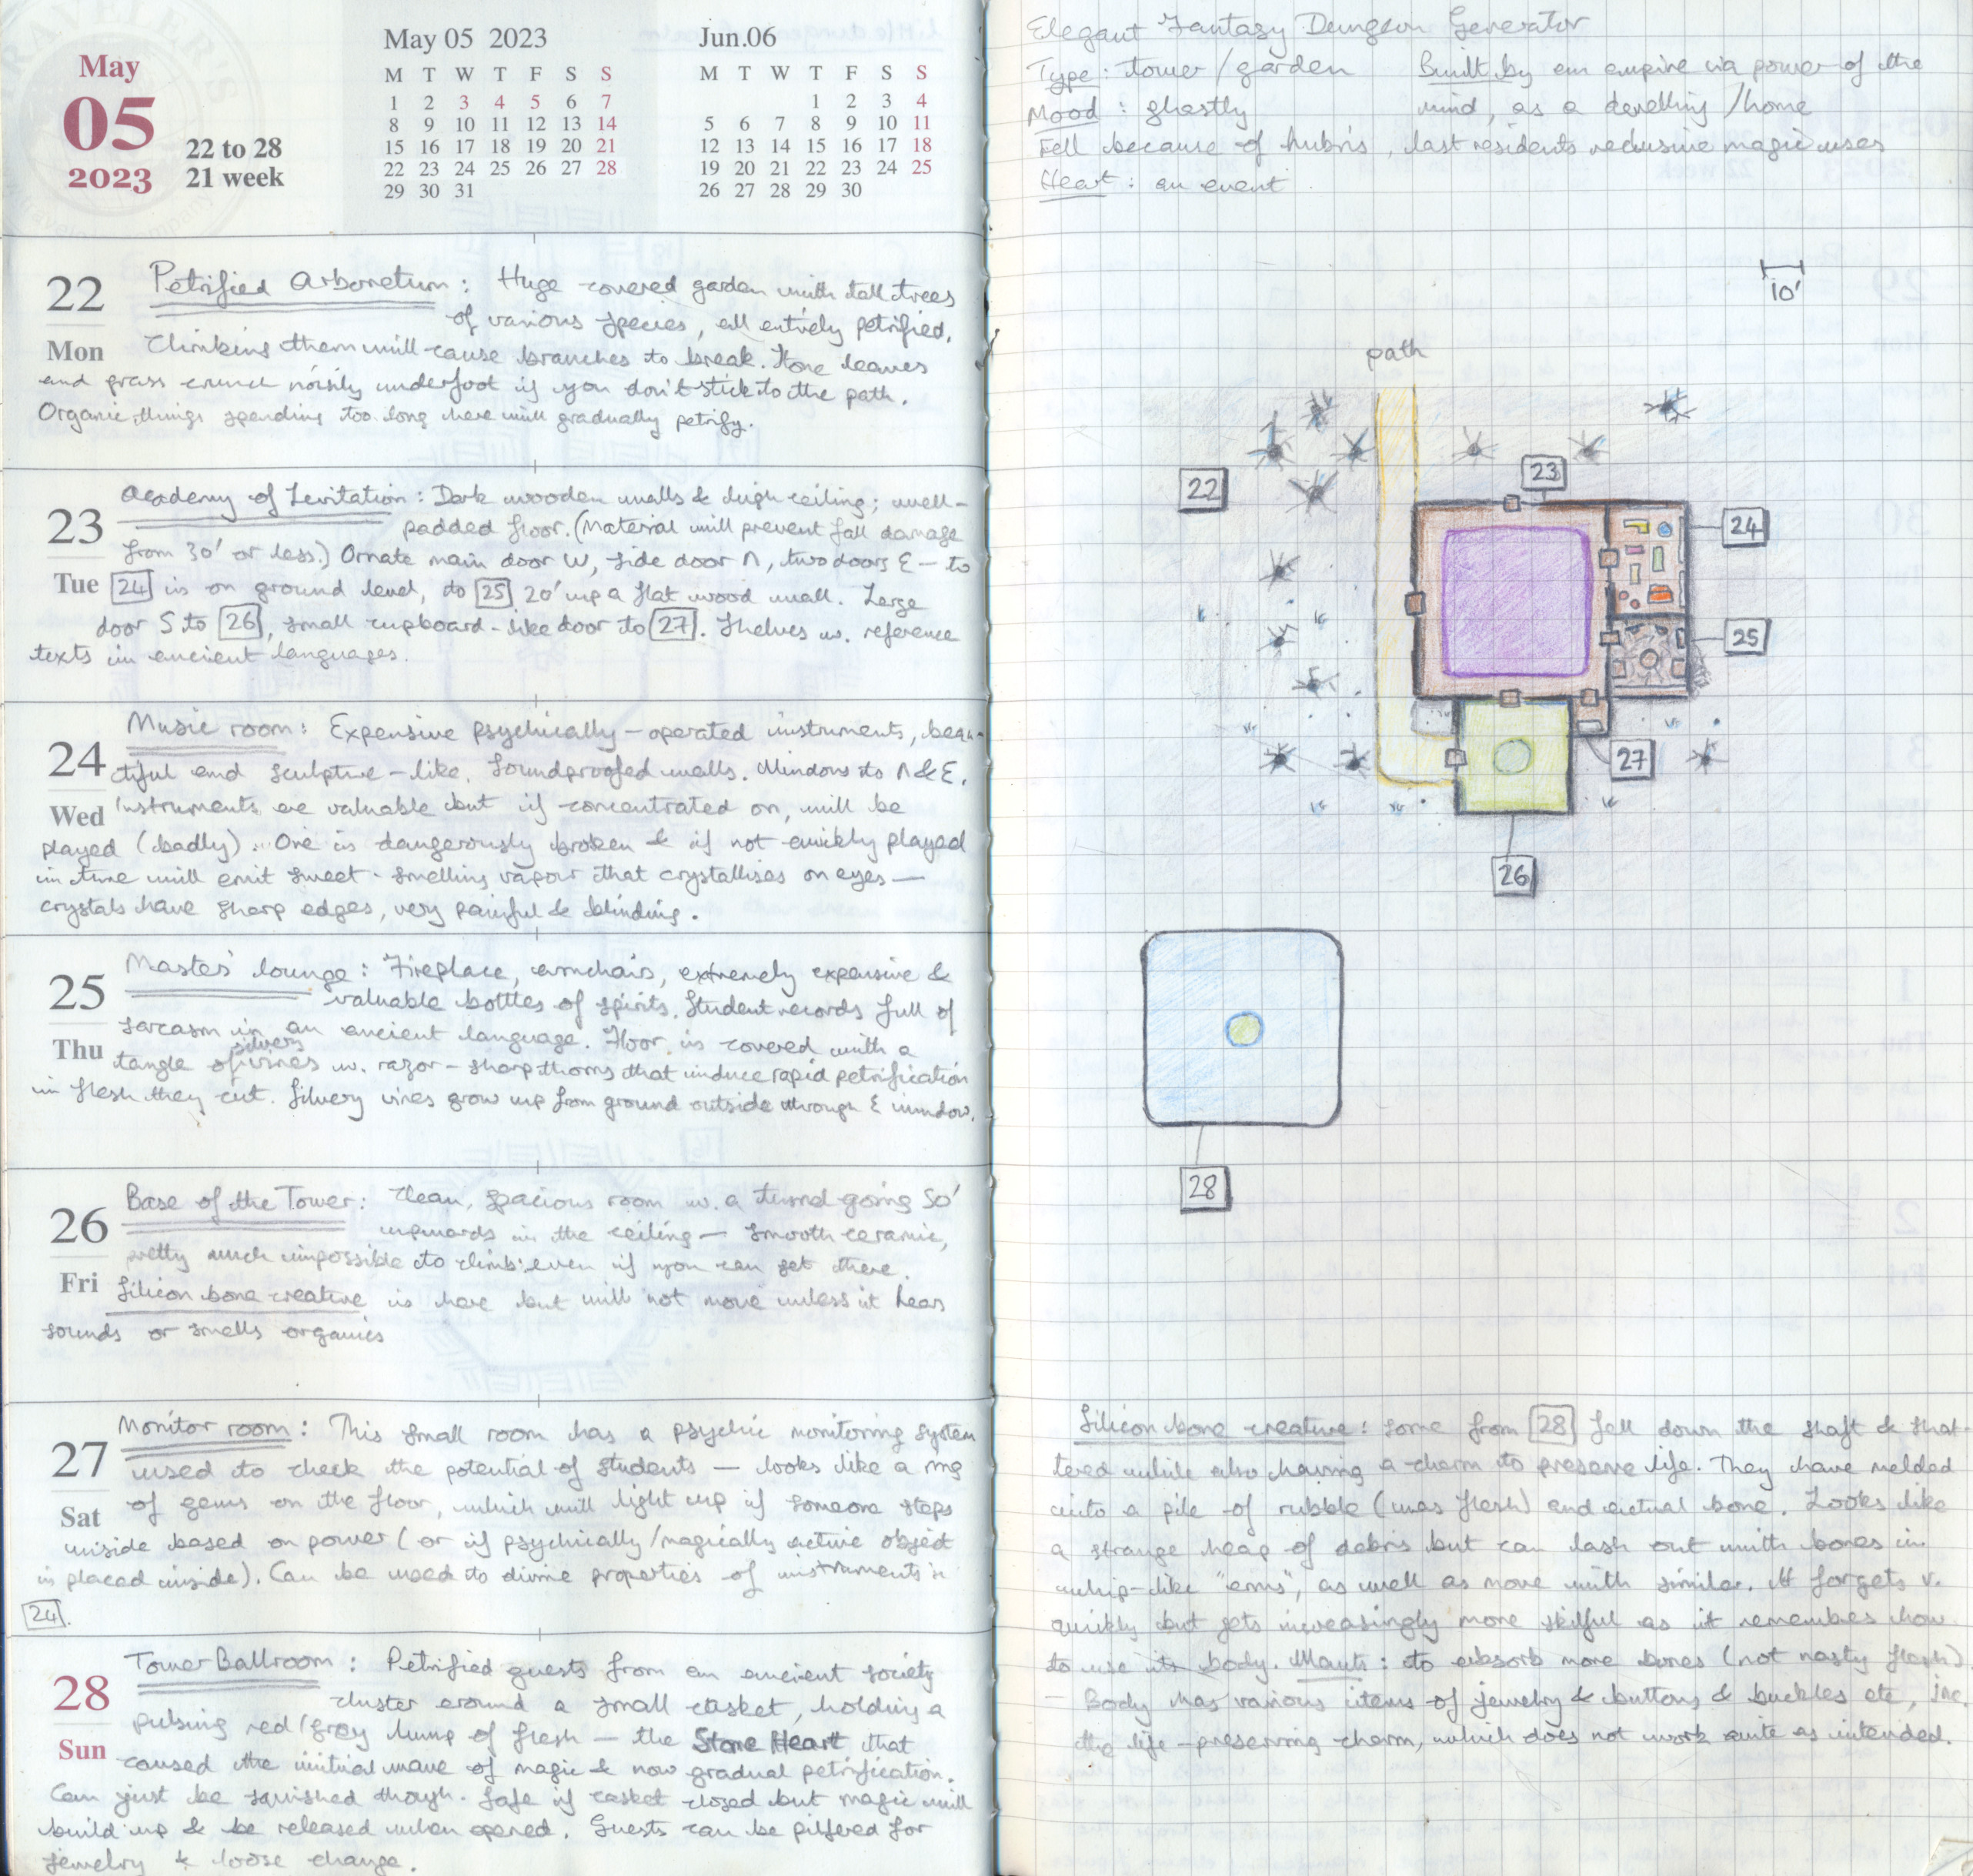 May
05
2023
22 to 28
21 week
May 05 2023
M T W T F S S
1 2 3 4 5 6 7
8 9 10 11 12 13 14
15 16 17 18 19 20 21
22 23 24 25 26 27 28
29 30 31
Jun.06
M T W T F S S
1 2 3 4
5 6 7 8 9 10 11
12 13 14 15 16 17 18
19 20 21 22 23 24 25
26 27 28 29 30
22
Mon
Petrified Arboretum: Huge covered garden with tall trees
of various species, all entirely petrified.
Climbing them will cause branches to break. Stone leaves
and grass crunch noisily underfoot if you don't stick to the path.
Organic things spending too long here will gradually petrify.
23
Tue
Academy of Levitation: Dark wooden walls & high ceiling; well-
padded floor. (Material will prevent fall damage
from 30' or less.) Ornate main door W, side door N, two doors E — to
24 is on ground level, to 25 20' up a flat wood wall. Large
door S to 26, small cupboard-like door to 27. Shelves w. reference
texts in ancient languages.
24
Wed
Music room: Expensive psychically-operated instruments, beau-
tiful and sculpture-like. Soundproofed walls. Windows to N & E.
Instruments are valuable but if concentrated on, will be
played (badly). One is dangerously broken & if not quickly played
in tune will emit sweet-smelling vapour that crystallises on eyes —
crystals have sharp edges, very painful & blinding.
25
Thu
Masters' lounge: Fireplace, armchairs, extremely expensive &
valuable bottles of spirits. Student records full of
sarcasm in an ancient language. Floor is covered with a
tangle of silvery vines w. razor-sharp thorns that induce rapid petrification
in flesh they cut. Silvery vines grow up from ground outside through E window.
26
Fri
Base of the Tower: Clean, spacious room w. a tunnel going 50'
upwards in the ceiling — smooth ceramic,
pretty much impossible to climb even if you can get there.
Silicon bone creature is here but will not move unless it hears
sounds or smells organics
27
Sat
Monitor room: This small room has a psychic monitoring system
used to check the potential of students — looks like a ring
of gems on the floor, which will light up if someone steps
inside based on power (or if psychically/magically active object
is placed inside). Can be used to divine properties of instruments in
24.
28
Sun
Tower Ballroom: Petrified guests from an ancient society
cluster around a small casket, holding a
pulsing red/grey lump of flesh — the Stone Heart that
caused the initial wave of magic & now gradual petrification.
Can just be squished though. Safe if casket closed but magic will
build up & be released when opened. Guests can be pilfered for
jewelry & loose change.
Elegant Fantasy Dungeon Generator
Type: tower/garden Built by an empire via power of the
Mood: ghastly mind, as a dwelling/home
Fell because of hubris, last residents reclusive magic users
Heart: an event
10'
path
22
23
24
25
27
26
28
Silicon bone creature: some from 28 fell down the shaft & shat-
tered while also having a charm to preserve life. They have melded
into a pile of rubble (was flesh) and actual bone. Looks like
a strange heap of debris but can lash out with bones in
whip-like "arms", as well as move with similar. It forgets v.
quickly but gets increasingly more skilful as it remembers how
to use its body. Wants: to absorb more bones (not nasty flesh)
— Body has various items of jewelry & buttons & buckles etc, inc.
the life-preserving charm, which does not work quite as intended.